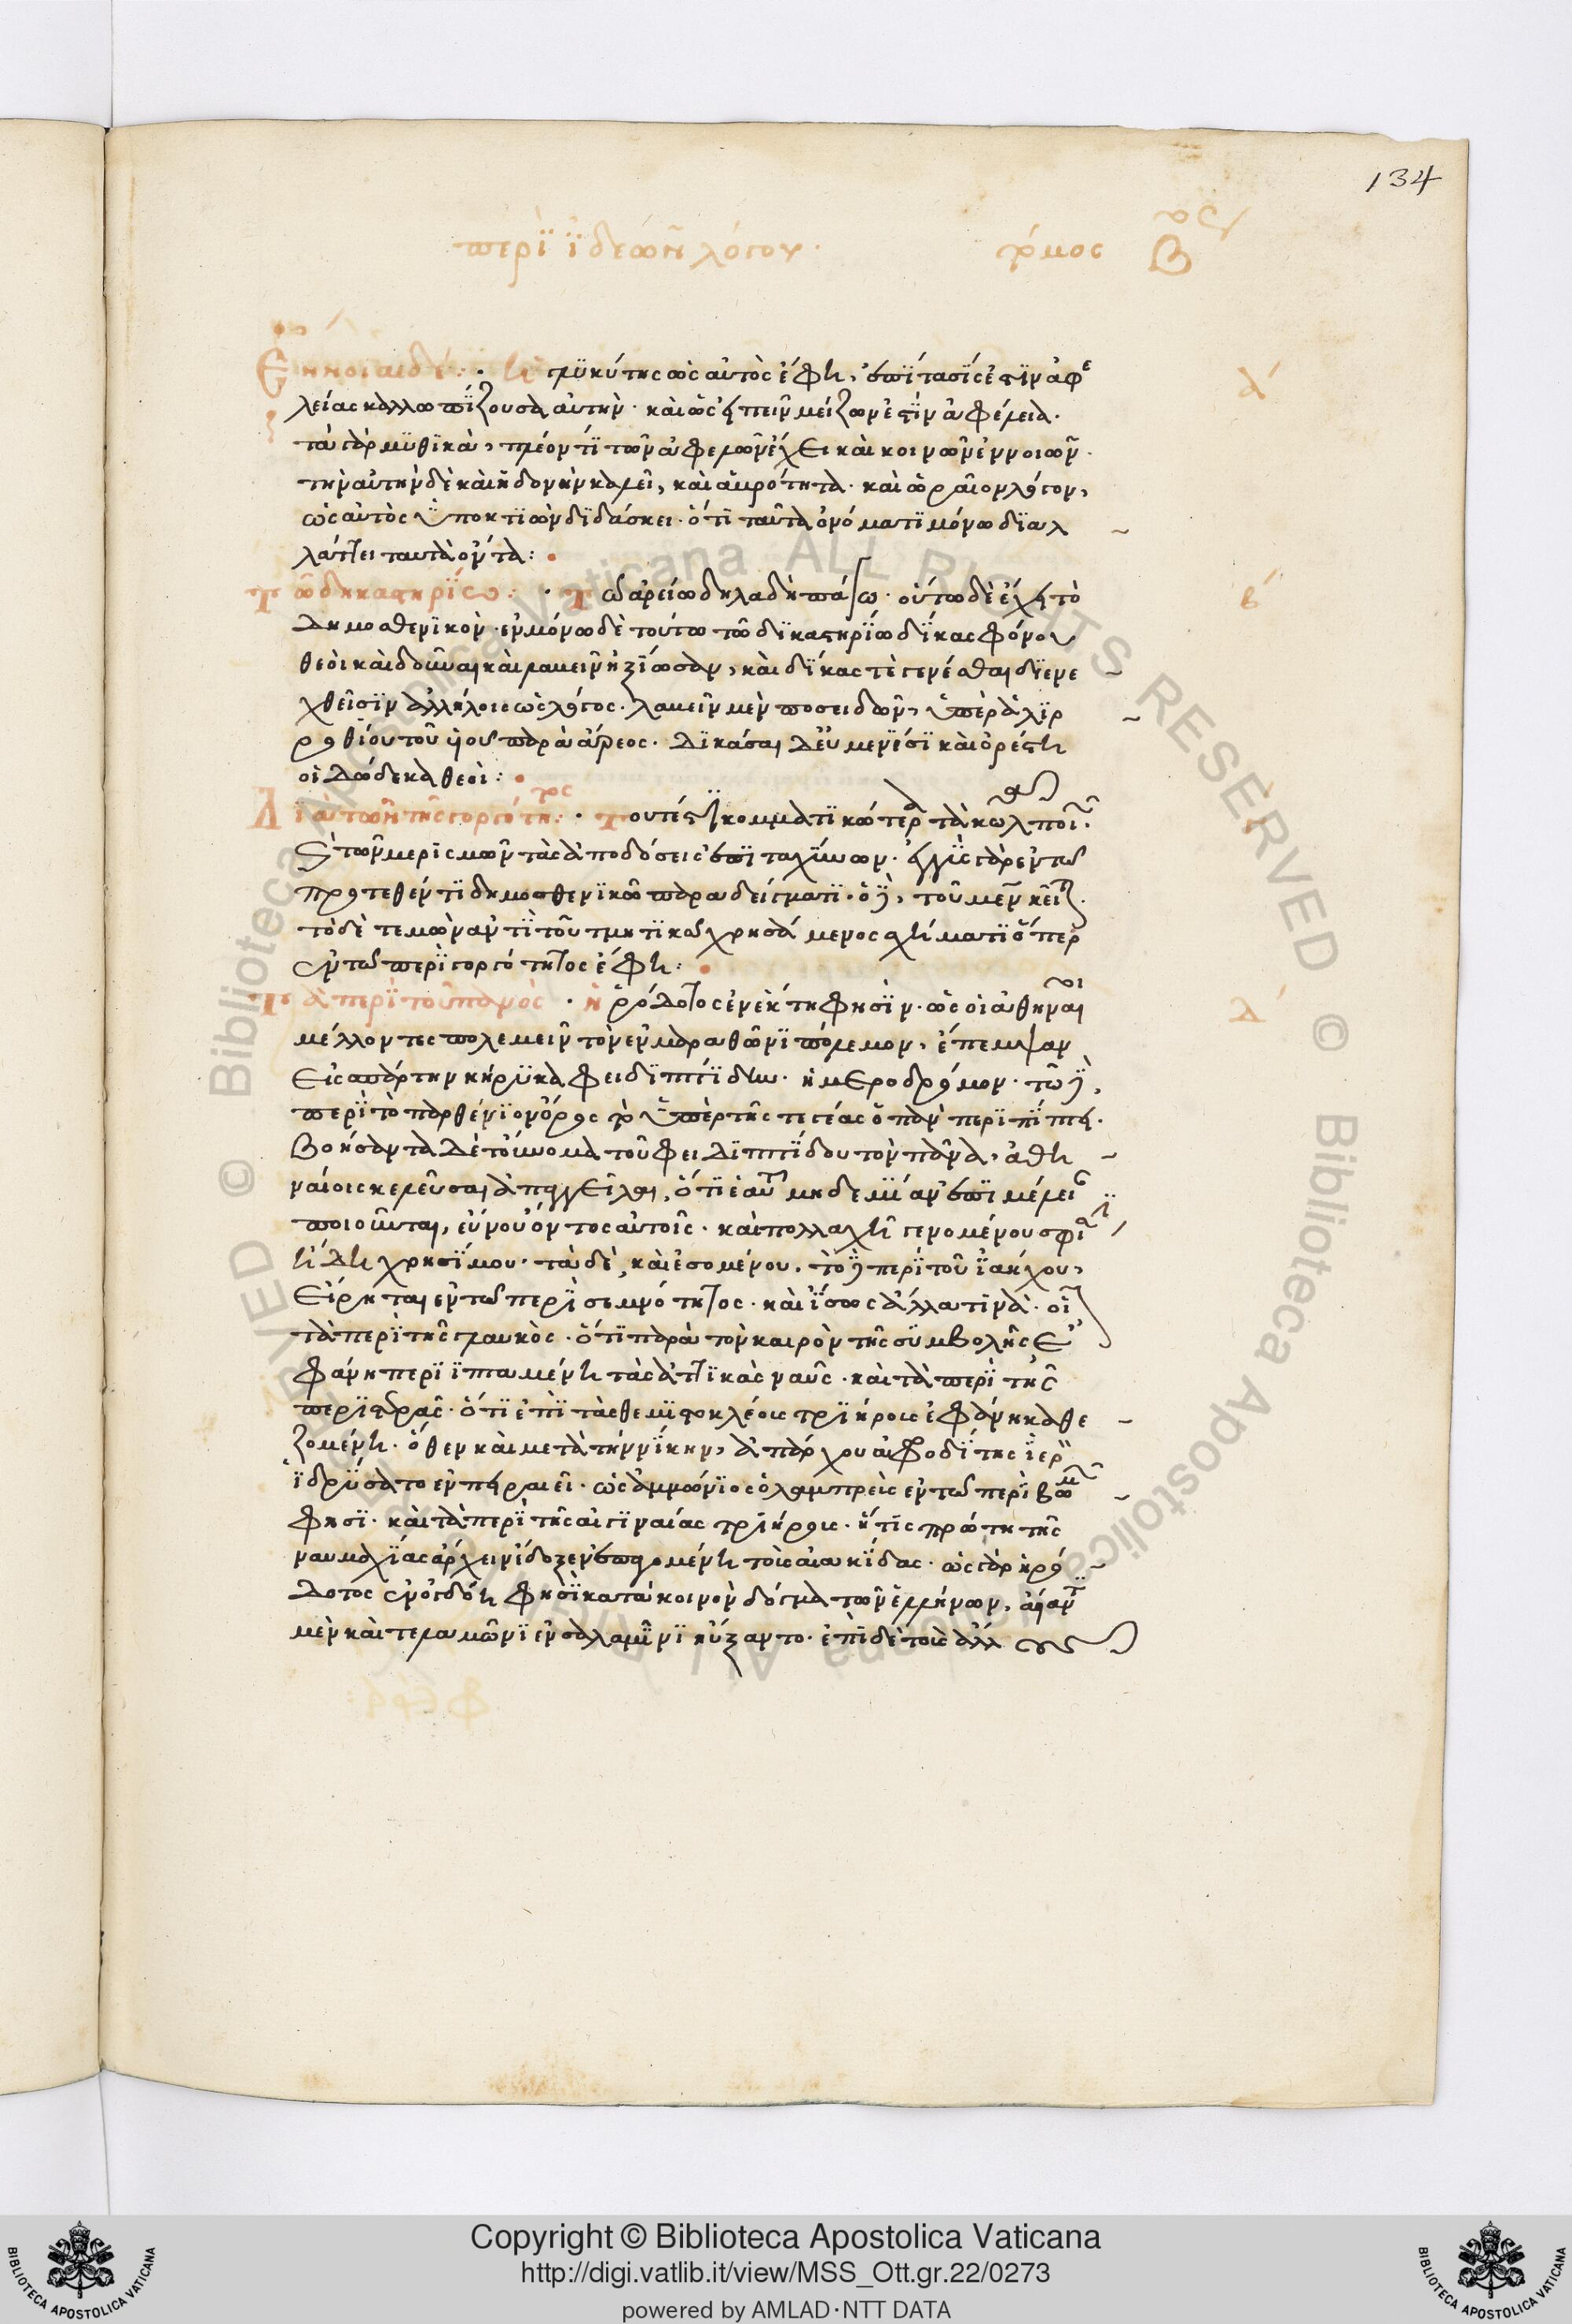 134
περὶ ἰδεῶν λόγου. τόμος Β
Ἔννοιαι δέ: · ἡ γλυκύτης ὡς αὐτὸς ἔφη, ἐπίτασίς ἐστιν ἀφε
λείας καλλωπίζουσα αὐτήν· καὶ ὡς εἰπεῖν μείζων ἐστὶν ἀφέλεια·
τὰ γὰρ μυθικὰ, πλέον τί τῶν ἀφελῶν ἔχει καὶ κοινῶν ἐννοιῶν·
τὴν αὐτὴν δὲ καὶ ἡδονὴν καλεῖ, καὶ ἁβρότητα· καὶ ὡραῖον λόγον,
ὡς αὐτὸς ὑποκατιὼν διδάσκει· ὅτι ταῦτα ὀνόματι μόνω διαλ
λάττει ταυτὰ ὄντα:
Τῶ δικαστηρίω: · Τῶ ἀρείω δηλαδὴ πάγω· οὕτω δὲ ἔχει τὸ
Δημοσθενικὸν· ἐν μόνω δὲ τούτω τῶ δικαστηρίω δίκας φόνου
θεοὶ καὶ δοῦναι καὶ λαβεῖν ἠξίωσαν, καὶ δίκας τὲ γενέσθαι διενε
χθεῖσιν ἀλλήλοις ὡς λόγος. λαβεῖν μὲν ποσειδῶν, ὑπὲρ ἁλιρ
ροθίου τοῦ υἱοῦ παρὰ ἄρεος. Δικάσαι Δ' εὐμενίσι καὶ ὀρέστη
οἱ Δώδεκα θεοὶ:
Διὰ τῶν τῆς γοργότητος: · Τουτέστι κομματικώτερα τὰ κῶλα ποιεῖν.
καὶ τῶν μερισμῶν τὰς ἀποδόσεις ἐπιταχύνων·
προτεθέντι δημοσθενικῶ παραδείγματι·
τὸ δὲ τεμὼν ἀντὶ τοῦ τμητικῶ χρησάμενος σχήματι ὅπερ
ἐν τῶ περὶ γοργότητος ἔφη:
Τὰ περὶ τοῦ πανὸς · Ἡρόδοτος ἐν ἕκτη φησὶν· ὡς οἱ ἀθηναῖοι
μέλλοντες πολεμεῖν τὸν ἐν μαραθῶνι πόλεμον, ἔπεμψαν
Εἰς σπάρτην κήρυκα φειδιππίδην· ἡμεροδρόμον· τῶ δὲ,
περὶ τὸ παρθένιον ὄρος τὸ ὑπὲρ τῆς τεγέας ὁ πὰν περιπίπτει.
Βοήσαντα Δὲ τοὔνομα τοῦ φειδιππίδου τὸν πᾶνα, ἀθη
ναίοις κελεῦσαι ἀπαγγεῖλαι, ὅτι ἑαυτοῦ μηδεμίαν ἐπιμέλειαν
ποιοῦνται, εὔνου ὄντος αὐτοῖς. καὶ πολλαχῆ γενομένου σφίσιν
ἤδη χρησίμου· τὰ δὲ, καὶ ἐσομένου. τὸ δὲ περὶ τοῦ ἰάκχου,
Εἴρηται ἐν τῶ περὶ σεμνότητος· καὶ ἴσως ἄλλα τινά· οἷον
τὰ περὶ τῆς γλαυκὸς· ὅτι παρὰ τὸν καιρὸν τῆς συμβολῆς ἐ
φάνη περιϊπταμένη τὰς ἀττικὰς ναῦς· καὶ τὰ περὶ τῆς
περιστερᾶς· ὅτι ἐπὶ ταῖς θεμιστοκλέοις τριήροις ἐφάνη καθε
ζομένη· ὅθεν καὶ μετὰ τὴν νίκην, ἀπάρχου ἀφροδίτης ἱερὸν
ἱδρύσατο ἐν πειραιεῖ· ὡς ἀμμώνιος ὁ λαμπρεὺς ἐν τῶ περὶ βωμῶν
φησι· καὶ τὰ περὶ τῆς αἰγιναίας τριήροις· ἥτις πρώτη τῆς
ναυμαχίας ἄρχειν ἔδοξεν τοὺς αἰακίδας· ὡς γὰρ ἡρό
Δοτος ἐν ὀγδόη φησὶ κατὰ κοινὸν δόγμα τῶν ἑλλήνων, αἴαντι
μὲν καὶ τελαμῶνι ἐν σαλαμῖνι ηὔξαντο· ἐπὶ δὲ τοὺς ἄλλους
Copyright © Biblioteca Apostolica Vaticana
http://digi.vatlib.it/view/MSS_Ott.gr.22/0273
powered by AMLAD·NTT DATA